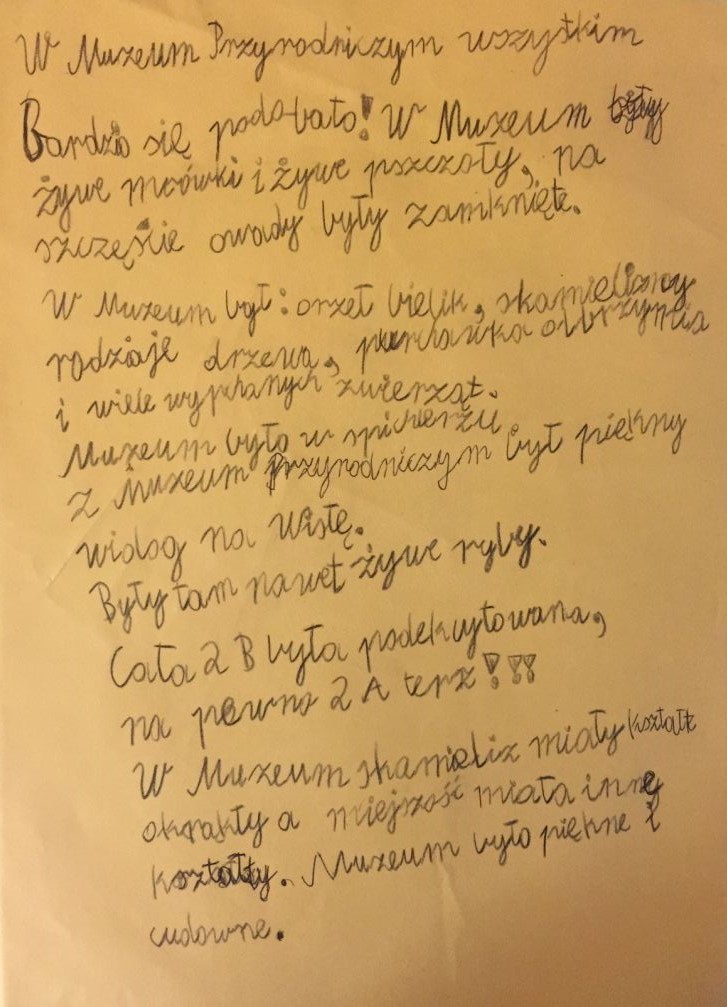 W Muzeum Przyrodniczym wszystkim
Bardzo się podobało! W Muzeum były
żywe mrówki i żywe pszczoły, na
szczęście owady były zamknięte.
W Muzeum był: orzeł bielik, skamieliny
rodzaje drzewa, purchawka olbrzymia
i wiele wypchanych zwierząt.
Muzeum było w spicherzu
Z Muzeum Przyrodniczym był piękny
widog na Wisłę.
Były tam nawet żywe ryby.
Cała 2 B była podekcytowana,
na pewno 2 A terz!!!
W Muzeum skamieliz miały kształt
okrakły a miejszość miała inne
kształty. Muzeum było piękne i
cudowne.